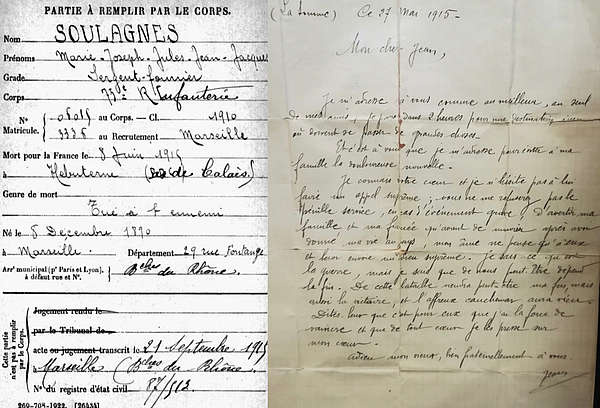 PARTIE À REMPLIR PAR LE CORPS.
Nom SOULAGNES
Prénoms Marie-Joseph-Jules-Jean-Jacques
Grade Sergent-fourrier
Corps R. Infanterie
N° au Corps. — Cl. 1910
Matricule. au Recrutement Marseille
Mort pour la France le 8 Juin 1915
à Hébuterne (Pas de Calais)
Genre de mort
Tué à l'ennemi
Né le 8 Décembre 1890
à Marseille. Département 29 rue Fontange
Arr' municipal (p' Paris et Lyon),
à défaut rue et N°.
B.ches du Rhône.
Cette partie
n'est pas à remplir
par le Corps.
Jugement rendu le
par le Tribunal de
acte ou jugement transcrit le 21 Septembre 1915
à Marseille (B.ches du Rhône)
N° du registre d'état civil 87/512
269-708-1922. [26434]
(La Somme) Ce 27 Mai 1915 -
Mon cher Jean,
Je m'adresse à vous comme au meilleur, au seul
de mes amis, je pars dans 2 heures pour une destination
où doivent se passer de grandes choses.
Et c'est à vous que je m'adresse pour
famille la douloureuse nouvelle.
Je connais votre cœur et je n'hésite pas à lui
faire un appel suprême, vous ne me refuserez pas le
service, en cas d'événement grave, d'avertir ma
famille et ma fiancée qu'avant de mourir, après avoir
donné ma vie au pays, mon âme ne pense qu'à eux
et leur envoie un adieu suprême. Je sais ce qu'est
la guerre, mais je sais que de nous peut être dépend
la fin. De cette bataille viendra peut être ma fin, mais
aussi la victoire, et l'affreux cauchemar aura vécu.
Dites leur que c'est pour eux que j'ai la force de
vaincre et que de tout cœur je les presse sur
mon cœur.
Adieu mon vieux, bien fraternellement à vous.